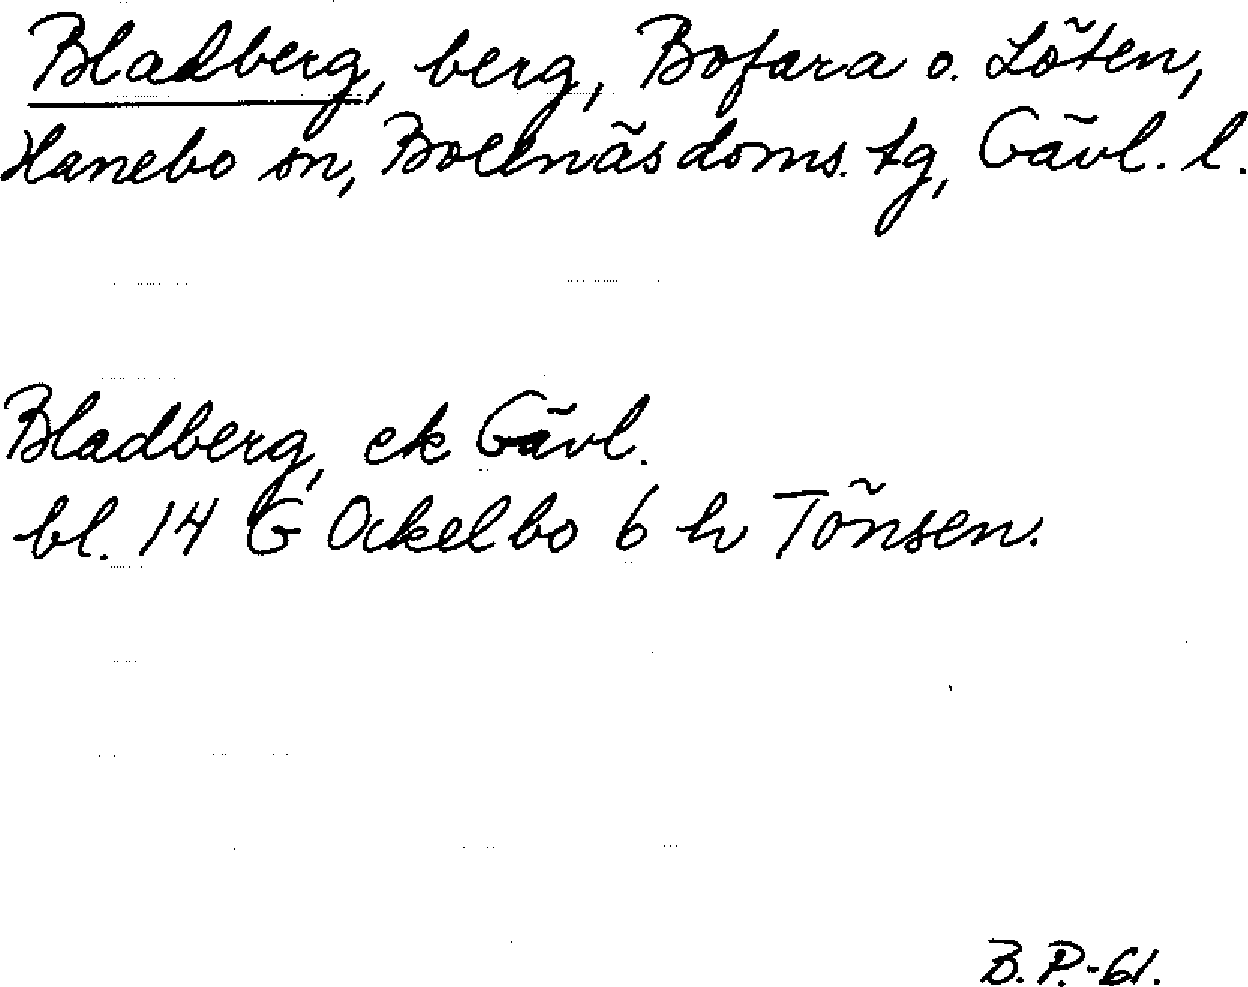 Bladberg, berg, Bofara o. Löten,
Hanebo sn, Bollnäs doms. tg, Gävl. l.
Bladberg, ek Gävl.
bl. 14 G Ockelbo 6 h Tönsen.
B.P.-61.